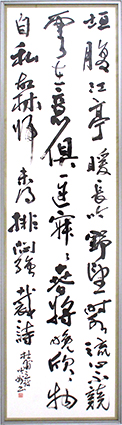 坦腹江亭暖長吟野望時水流心不競
雲在意俱遲寂〻春將晚欣〻物
自私故林歸未得排悶強裁詩
杜甫